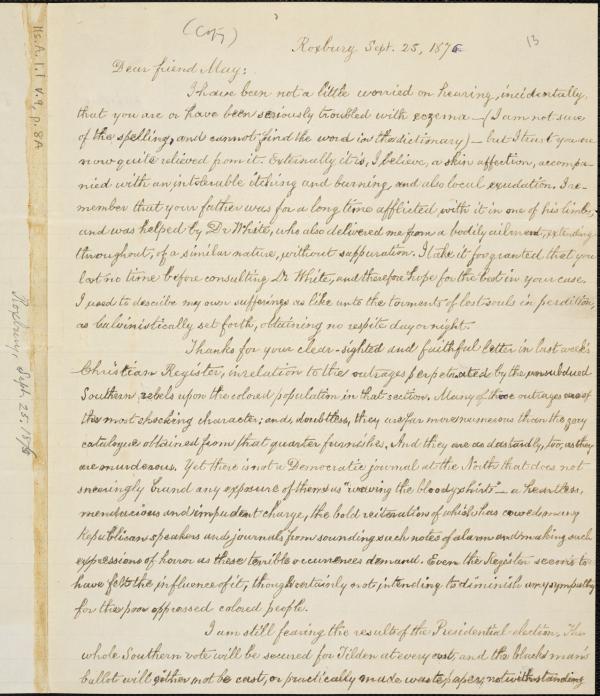 (Copy)
Roxbury Sept. 25, 1876
13
Dear friend May:
I have been not a little worried on hearing, incidentally,
that you are or have been seriously troubled with eczema — (I am not sure
of the spelling, and cannot find the word in the dictionary) — but I trust you are
now quite relieved from it. Externally it is, I believe, a skin affection, accompa-
nied with an intolerable itching and burning, and also local exudation. I re-
member that your father was for a long time afflicted with it in one of his limbs,
and was helped by Dr White, who also delivered me from a bodily ailment, extending
throughout, of a similar nature, without suppuration. I take it for granted that you
lost no time before consulting Dr White, and therefore hope for the best in your case.
I used to describe my own sufferings as like unto the torments of lost souls in perdition,
as Calvinistically set forth, obtaining no respite day or night.
Thanks for your clear-sighted and faithful letter in last week's
Christian Register, in relation to the outrages perpetrated by the unsubdued
Southern rebels upon the colored population in that section. Many of those outrages are of
the most shocking character; and, doubtless, they are far more numerous than the gory
catalogue obtained from that quarter furnishes. And they are as dastardly, too, as they
are murderous. Yet there is not a Democratic journal at the North that does not
sneeringly brand any exposure of them as "waving the bloody shirt" — a heartless,
mendacious and impudent charge, the bold reiteration of which has cowed many
Republican speakers and journals from sounding such notes of alarm and making such
expressions of horror as these terrible occurrences demand. Even the Register seems to
have felt the influence of it, though certainly not intending to diminish any sympathy
for the poor oppressed colored people.
I am still fearing the result of the Presidential election. The
whole Southern vote will be secured for Tilden at every cost, and the black man's
ballot will either not be cast, or practically made waste paper, notwithstanding
Ms. A. 1.1 v. 9, p. 8A
Roxbury, Sept. 25, 1876